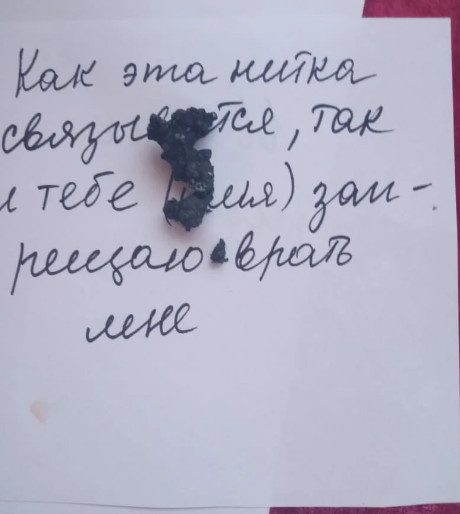 Как эта нитка
связывается, так
и тебе (имя) зап-
рещаю врать
мне